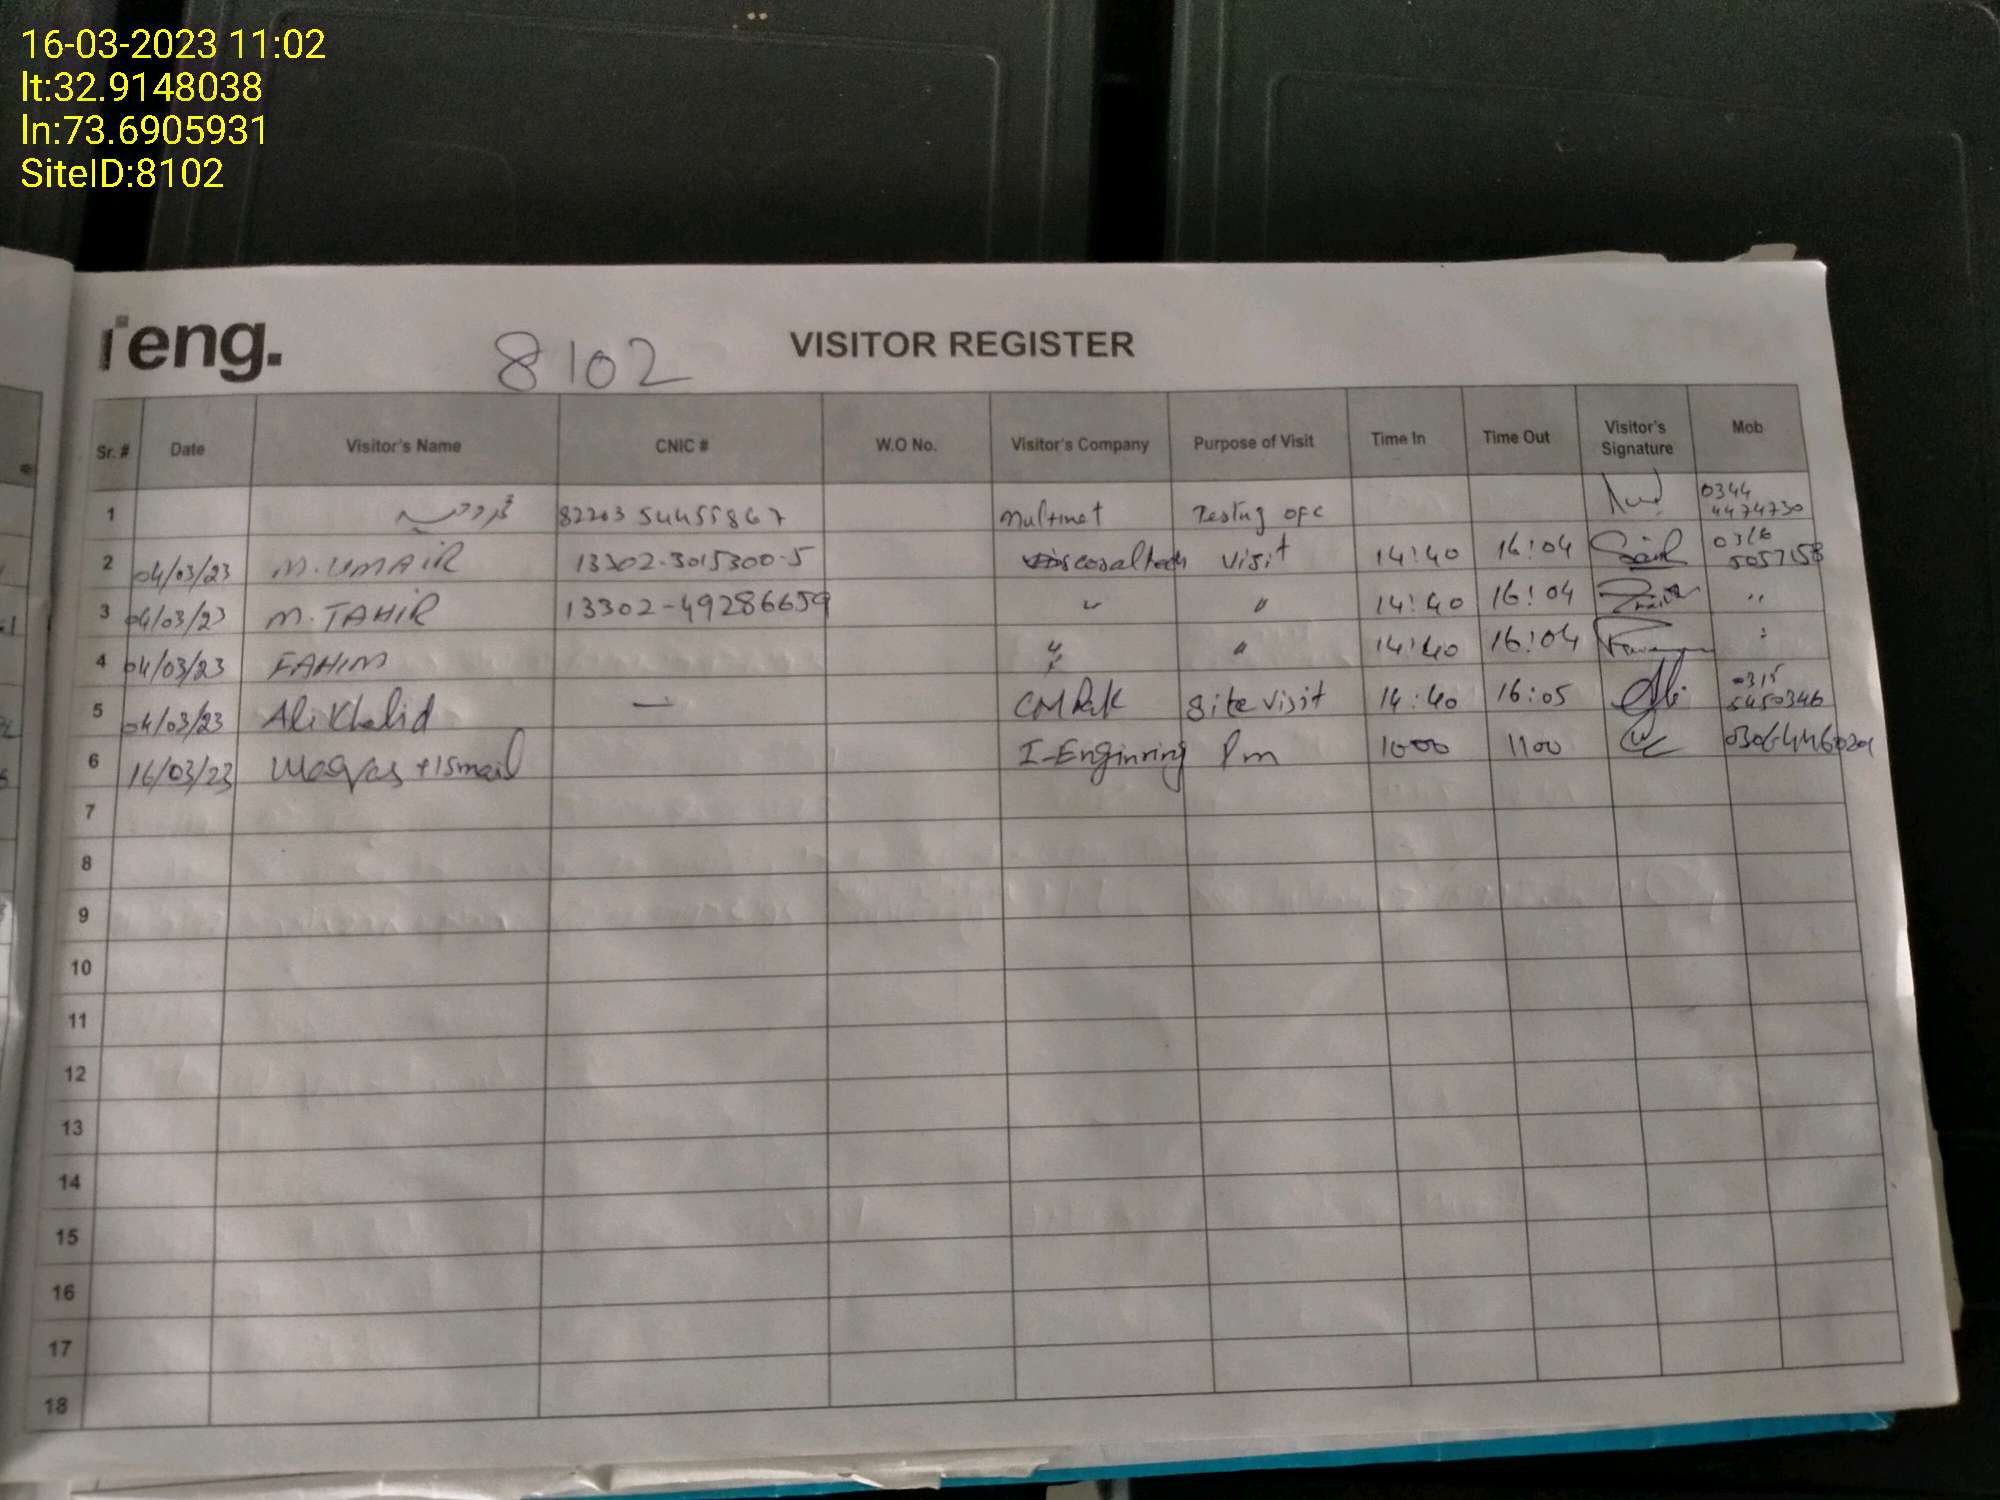 16-03-2023 11:02
lt:32.9148038
ln:73.6905931
SiteID:8102
i'eng. 8102 VISITOR REGISTER
Sr. # Date Visitor's Name CNIC # W.O No. Visitor's Company Purpose of Visit Time In Time Out Visitor's Signature Mob
1 82203 54455867 multinet Testing OFC 0344 4474730
2 04/03/23 M.UMAIR 13302-3015300-5 Visit 14:40 16:04 0316 5057158
3 04/03/23 M.TAHIR 13302-49286659 " " 14:40 16:04 "
4 04/03/23 FAHIM " " 14:40 16:04 "
5 04/03/23 Ali Khalid — CMPak Site visit 14:40 16:05 0315 5450346
6 16/03/23 Waqas + Ismail I-Enginring Pm 1000 1100
7
8
9
10
11
12
13
14
15
16
17
18